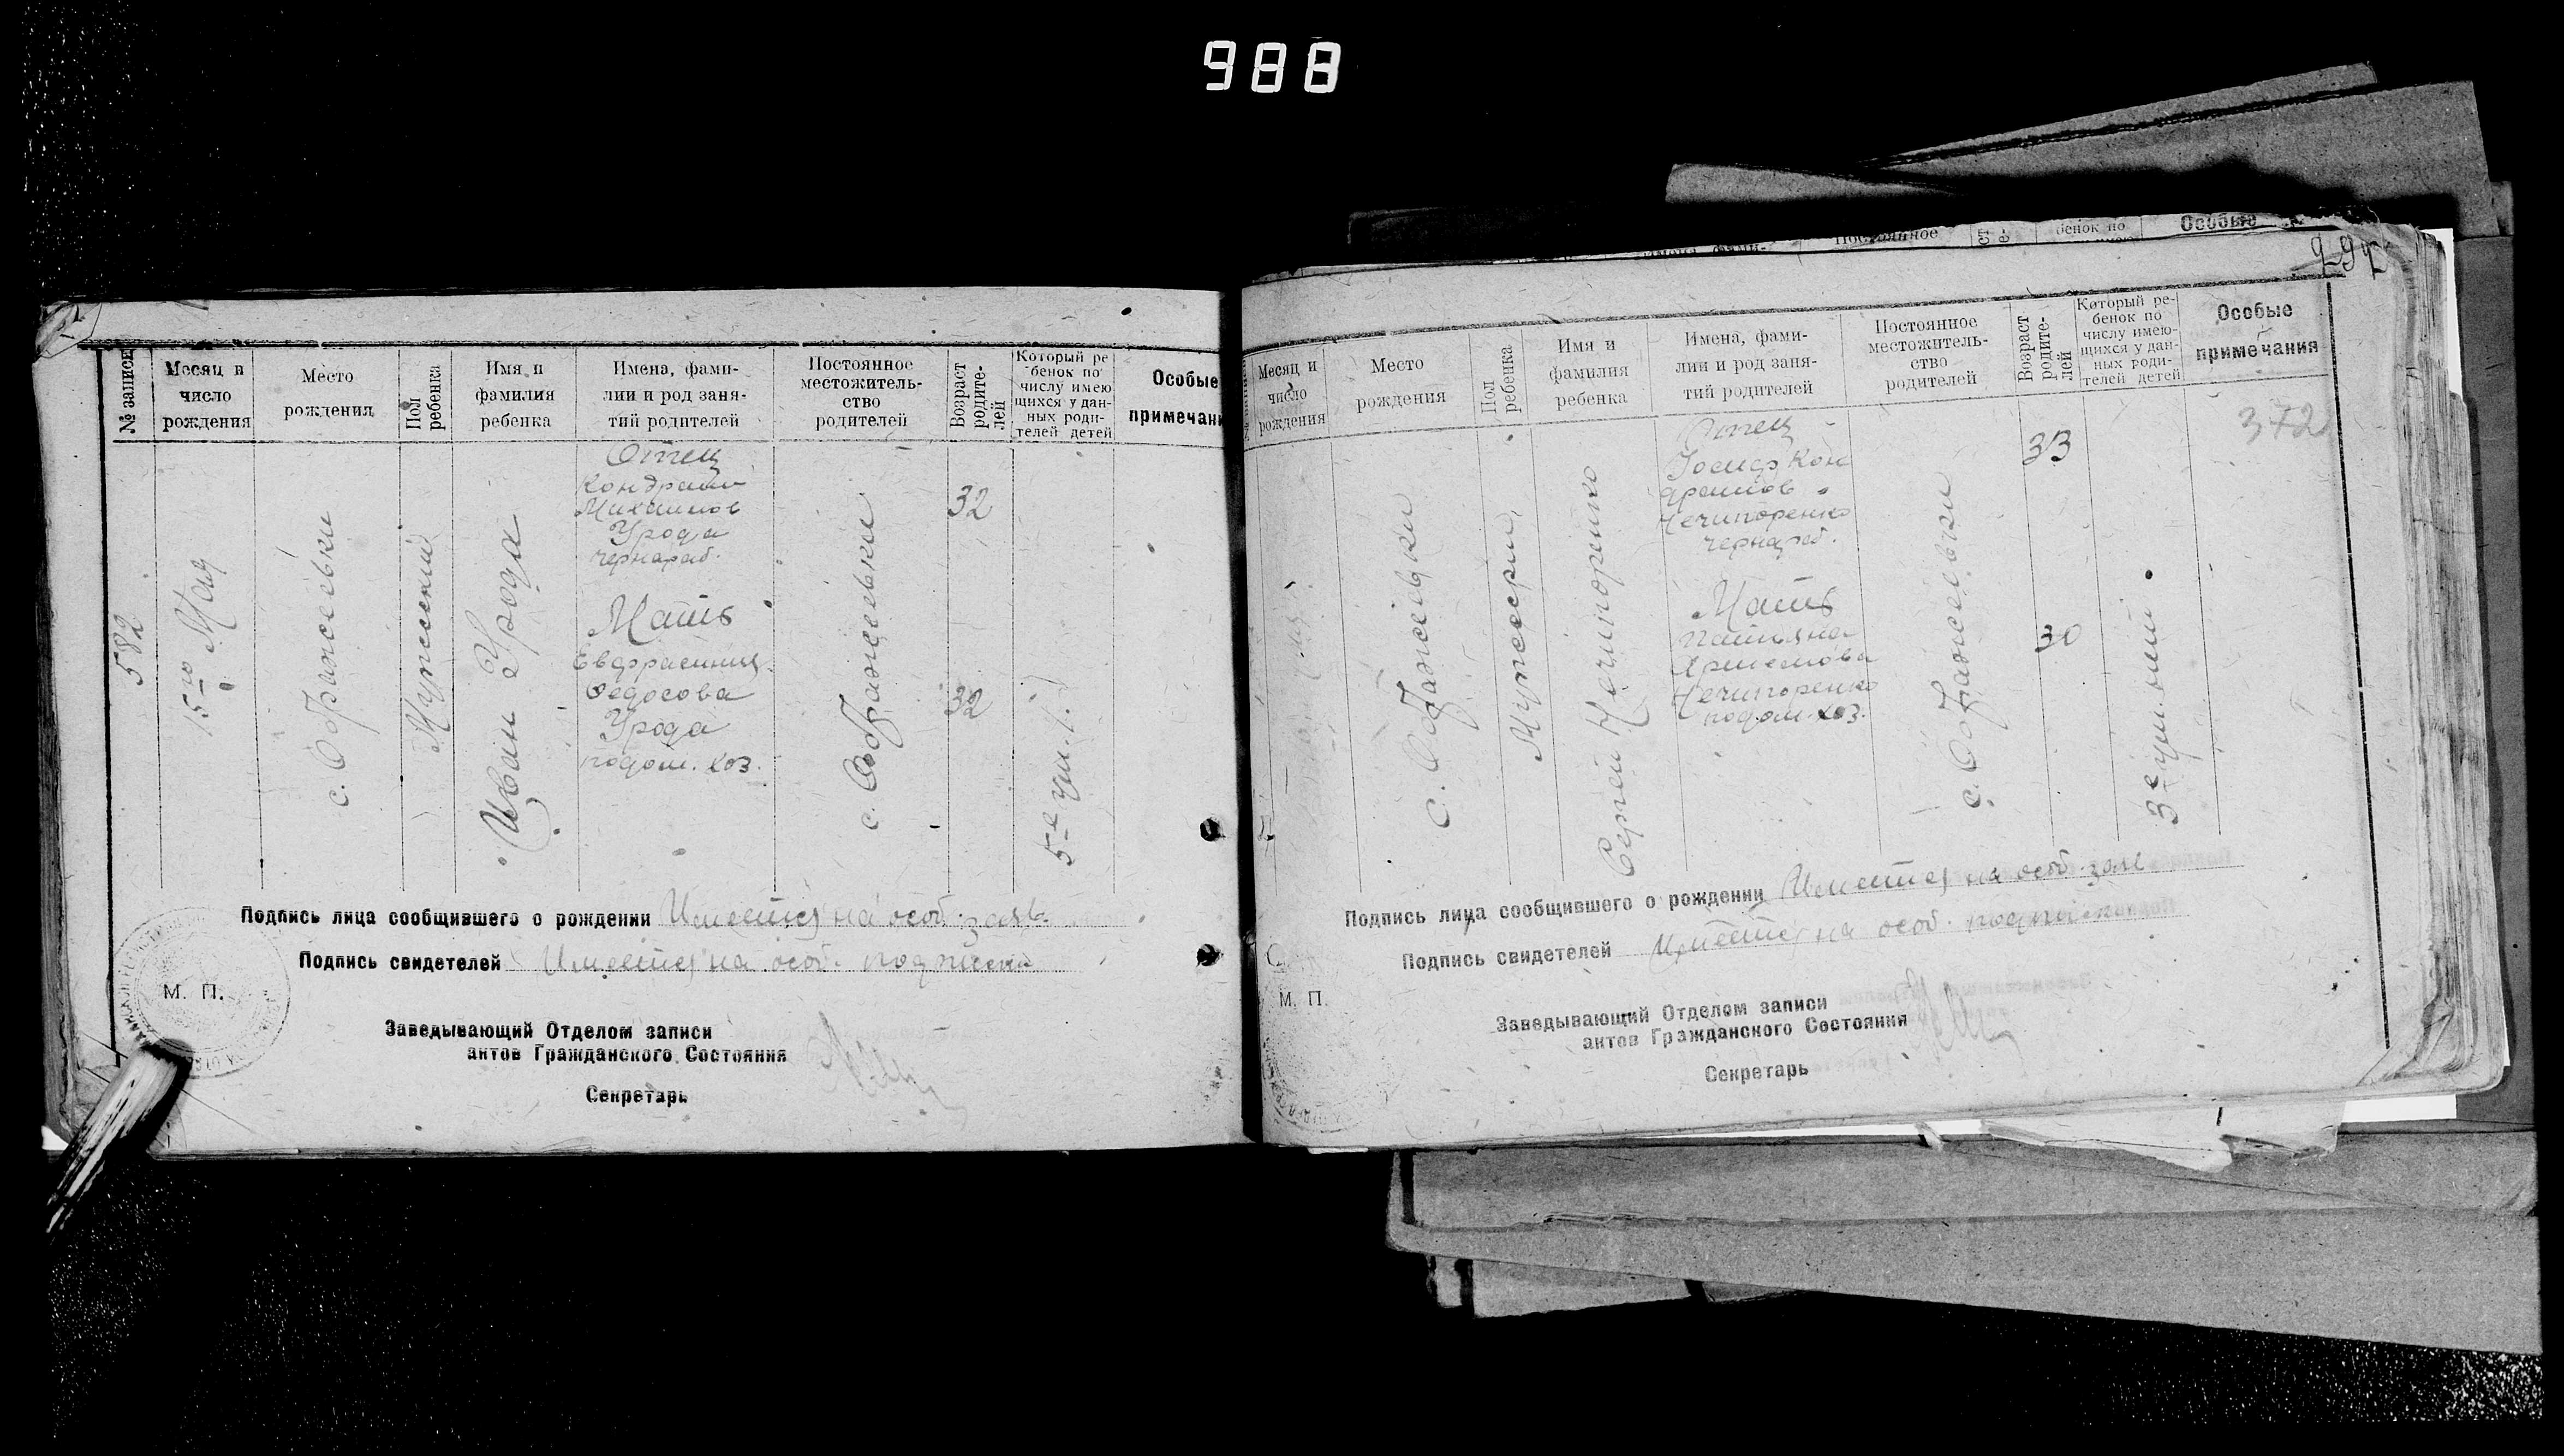 988
№ записи
Месяц и
число
рождения
Место
рождения
Пол
ребенка
Имя и
фамилия
ребенка
Имена, фами-
лии и род заня-
тий родителей
Постоянное
местожитель-
ство
родителей
Возраст
родите-
лей
Который ре
бенок по
числу имею
щихся у дан-
ных роди-
телей детей
Особые
примечан
582
15-го Мая
Мужеский
Иван Урода
Отец
Кондрат
Михаилов
Урода
чернораб.
Мать
Федосова
Урода
подом. хоз.
32
32
5-е
Подпись лица сообщившего о рождении Имеется на особ. заяв.
Подпись свидетелей Имеется на особ. подписка
М. П.
Заведывающий Отделом записи
актов Гражданского Состояния
Секретарь
Постоянное
бенок по
Особые
Месяц и
число
рождения
Место
рождения
Пол
ребенка
Имя и
фамилия
ребенка
Имена, фами-
лии и род заня-
тий родителей
Постоянное
местожитель-
ство
родителей
Возраст
родите-
лей
Который ре-
бенок по
числу имею-
щихся у дан-
ных роди-
телей детей
Особые
примечания
372
Сергей Нечипоренко
Отец
Иосиф Кон
дратов
Нечипоренко
чернораб.
Мать
Татьяна
Артемова
Нечипоренко
подом. хоз.
33
30
3-е
Подпись лица сообщившего о рождении Имеется на особ. заяв
Подпись свидетелей Имеется на особ. подписка
М. П.
Заведывающий Отделом записи
актов Гражданского Состояния
Секретарь